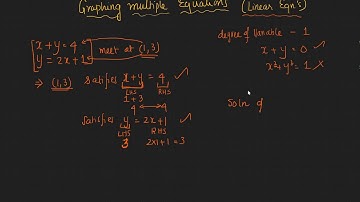 Graphing multiple Equations (Linear Eqn's)
x + y = 4
y = 2x + 1
meet at (1,3)
⇒ (1,3) satisfies x + y = 4 ✓
LHS RHS
1 + 3
4 ↔ 4
satisfies y = 2x + 1 ✓
LHS RHS
3 2x1 + 1 = 3
degree of variable - 1
x + y = 0 ✓
x² + y² = 1 ✗
Soln of